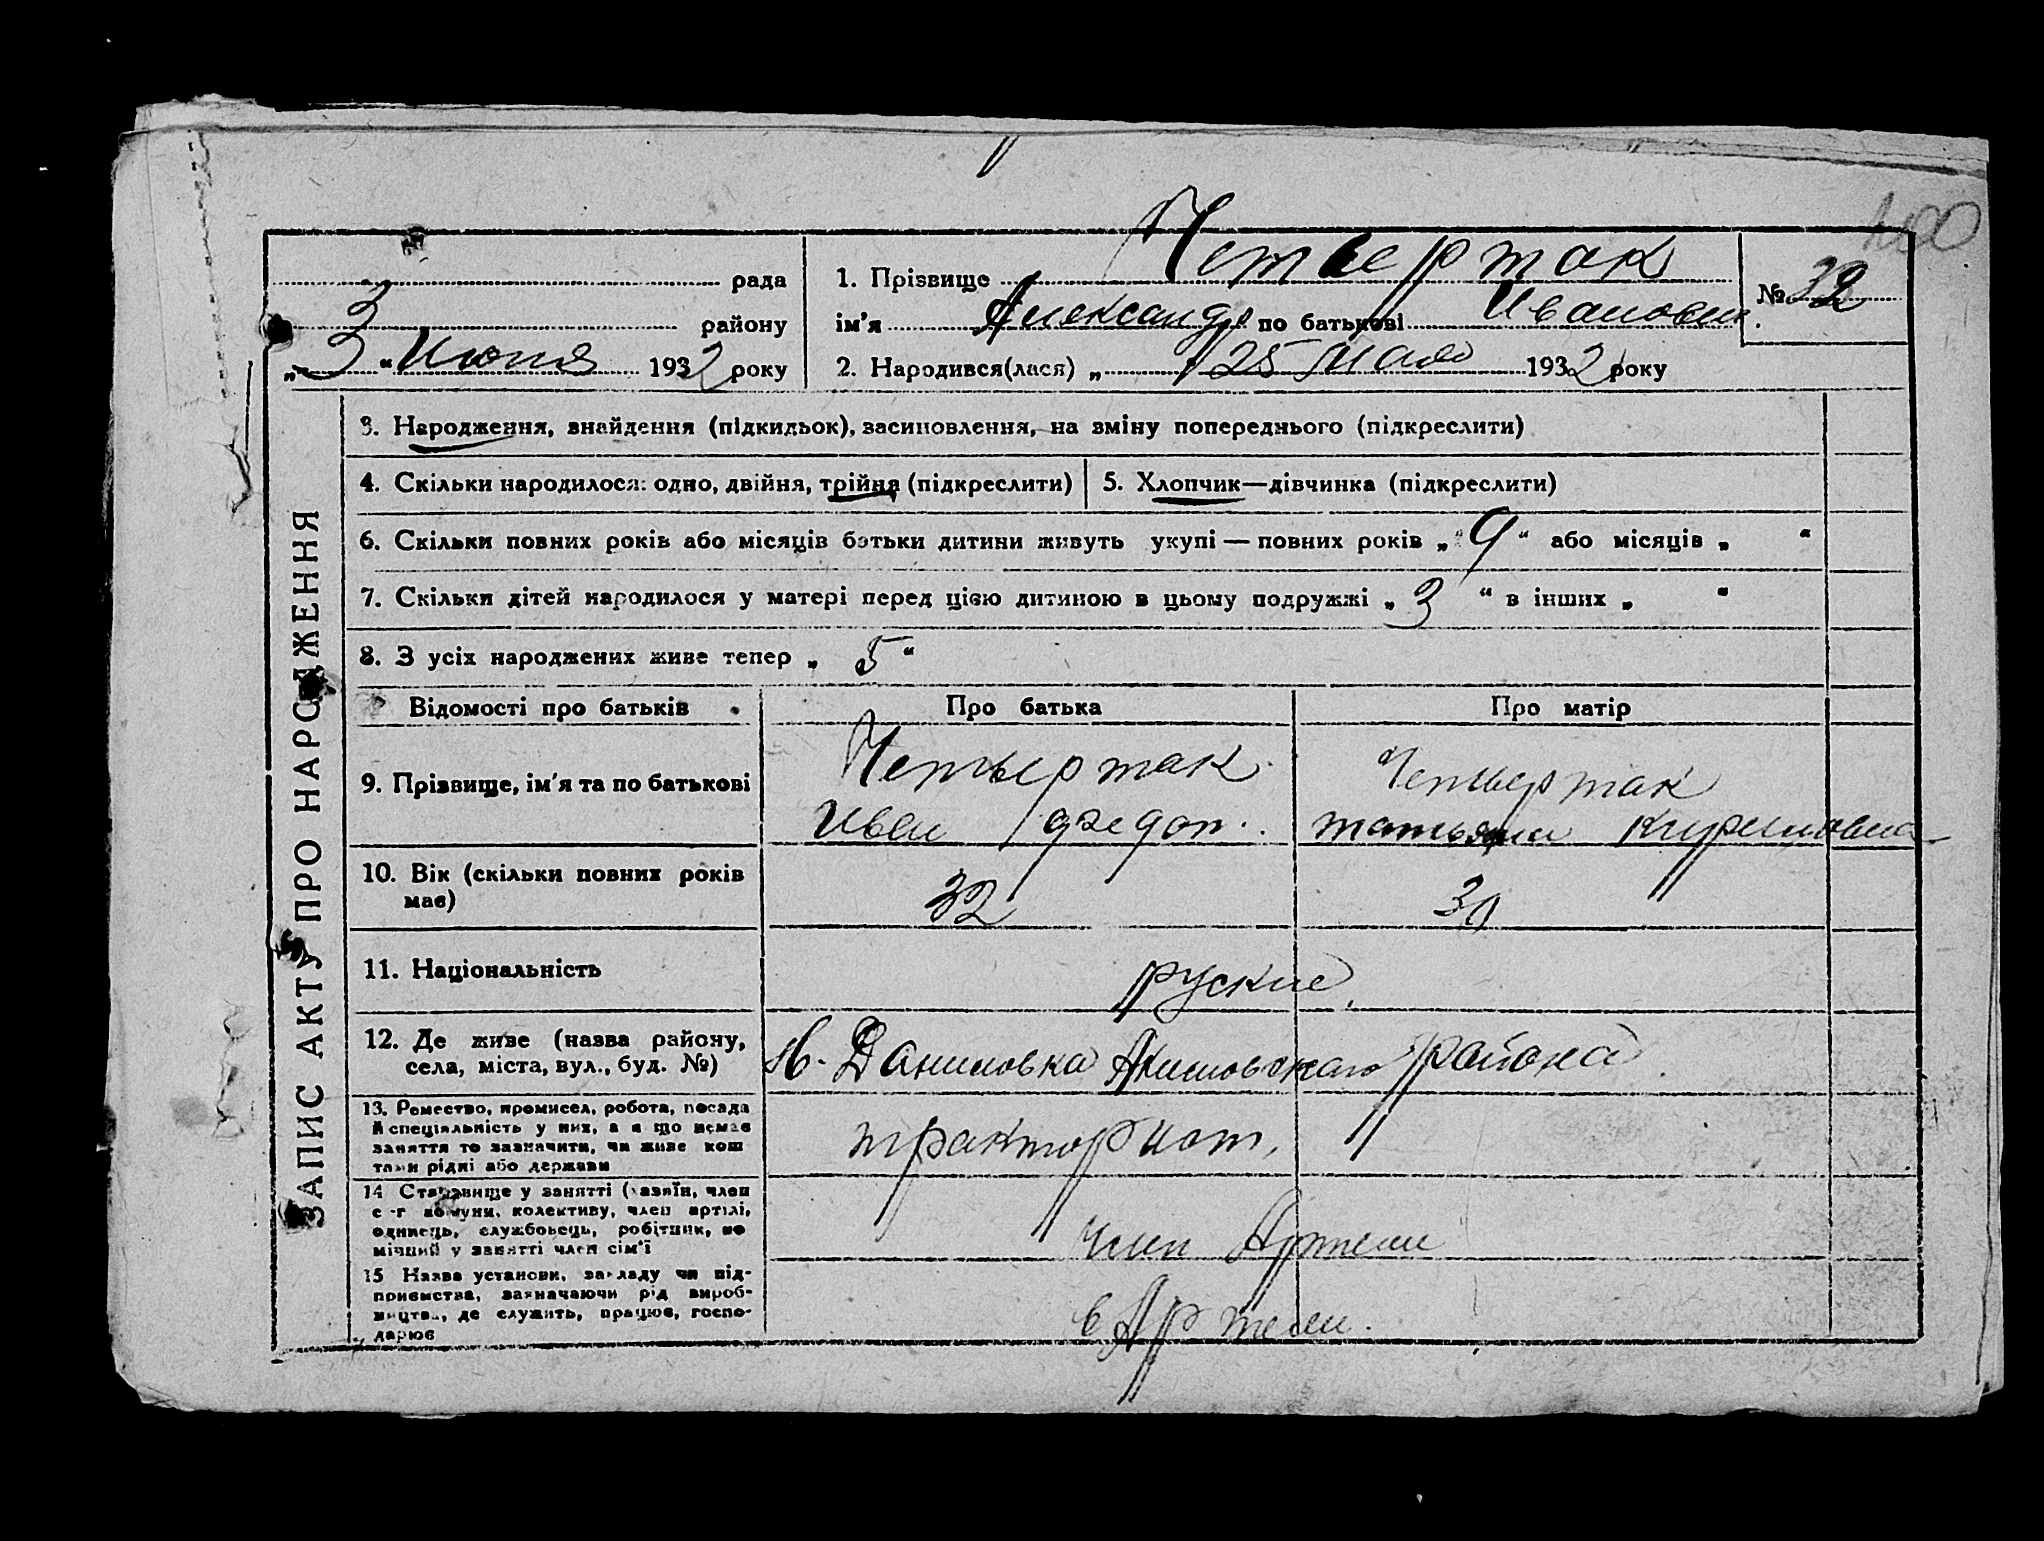 400
рада
района
району
„3“ Июня 1932 року
1. Прізвище Четвертак
ім'я Александр по батькові Иванович.
№ 32
2. Народився(лася) „ 25 Мая 1932 року
ЗАПИС АКТУ ПРО НАРОДЖЕННЯ
3. Народження, знайдення (підкидьок), засиновлення, на зміну попереднього (підкреслити)
4. Скільки народилося: одно, двійня, трійня (підкреслити)
5. Хлопчик—дівчинка (підкреслити)
6. Скільки повних років або місяців батьки дитини живуть укупі — повних років „9“ або місяців „ “
7. Скільки дітей народилося у матері перед цією дитиною в цьому подружжі „3“ в інших „ “
8. З усіх народжених живе тепер „5“
Відомості про батьків
Про батька
Про матір
9. Прізвище, ім'я та по батькові
Четвертак
Иван Федот.
Четвертак
татьяна
10. Вік (скільки повних років
має)
32
30
11. Національність
руские
12. Де живе (назва району,
села, міста, вул., буд. №)
Н. Даниловка Акимовскаго района.
13. Ремество, промисел, робота, посада
й спеціяльність у них, а я що немає
заняття то зазначити, чи живе кош
тами рідні або держави
тракторист,
14 Становище у занятті (хазяїн, член
с -г комуни, колективу, член артілі,
одинець, службовець, робітник, по
мічний у занятті член сім'ї
член Артели
15 Назва установи, закладу чи під-
приємства, зазначаючи рід вироб-
ництва, де служить, працює, госпо-
дарює
в Артели.